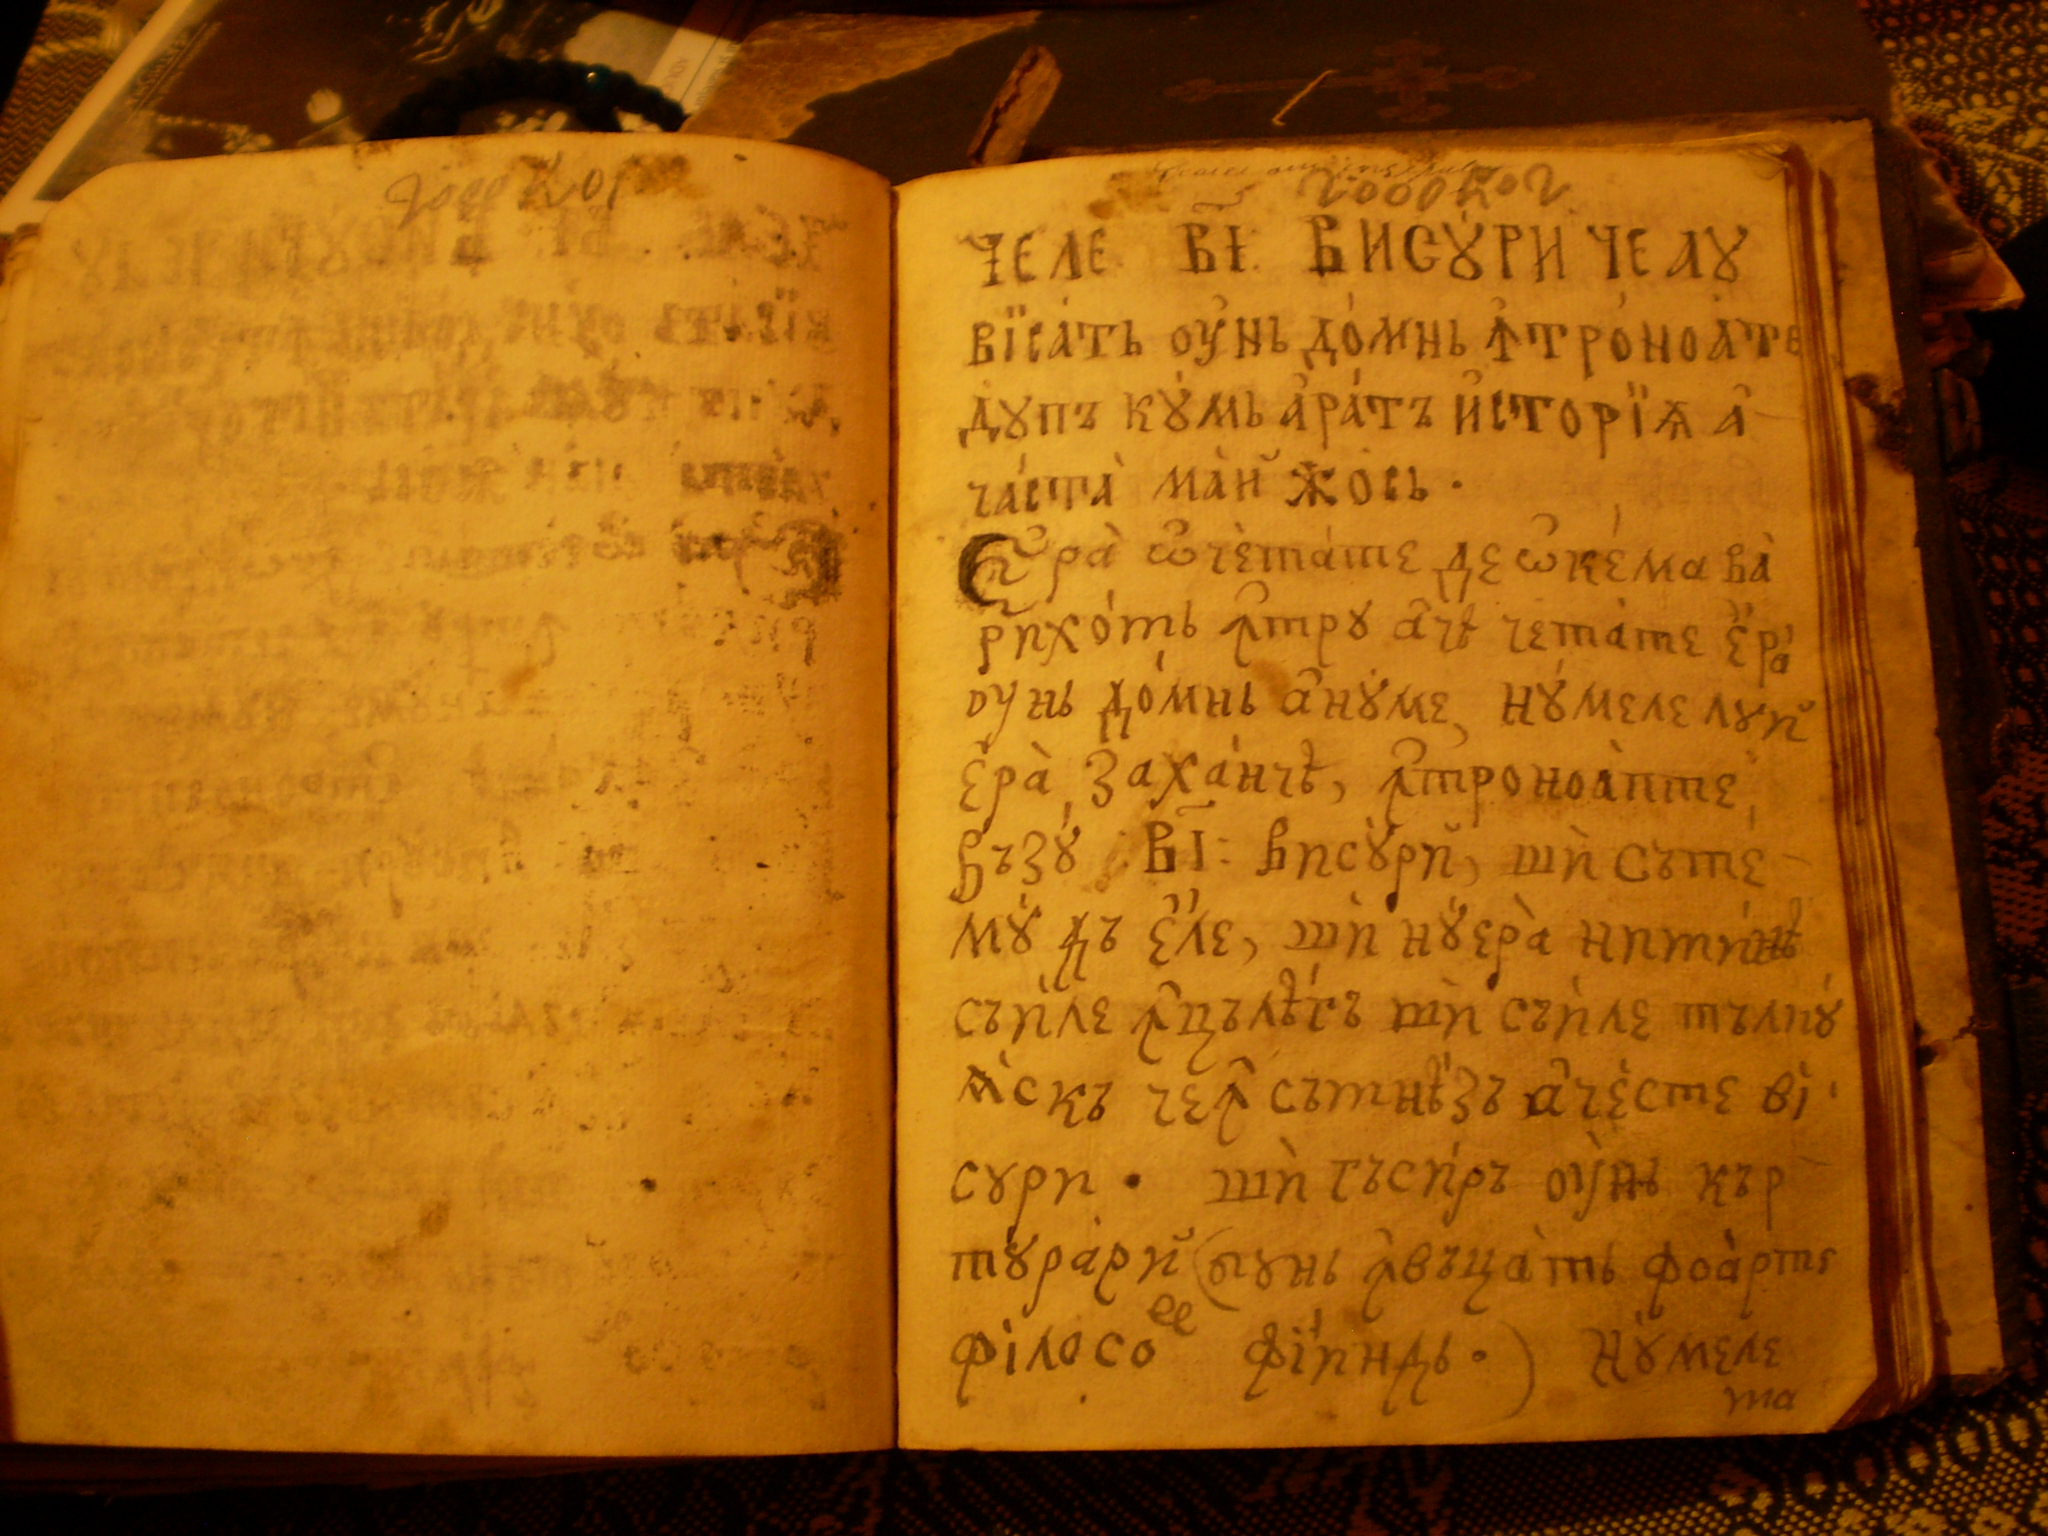 ЧЕЛЕ В҃І ВИСꙊ́РИ ЧЕ ЛꙊ
ВЇСА́ТЬ ОУ҆́НЬ ДО́МНЬ Ꙟ҆ТРО́НОА́ТЕ
ДꙊПЪ КꙊ́МЬ А҆РА́ТЪ И҆СТОРЇѦ А҆
ЧА́СТА МА́Й ЖО́СЬ .
Є҆ра̀ ѡ҆чета́те де ѡ҆ке́ма ва̀
рихо́ть ꙟ҆трꙋ а҆чѣ чета́те є҆ра̀
оунь до́мнь а҆нꙋ́ме, Нꙋ́меле лꙋй
є҆ра̀ Заха́нчѣ, ꙟ҆троноа́пте
Възꙋ́ В҃І: висꙋ́рй, шѝ съте́
мꙋ́ дъ є҆́ле, шѝ нꙋера̀ нитѝнѣ
съи́ле ꙟ҆цълѣ́гъ шѝ съи́ле тълкꙋ
ꙗ҆скъ че ꙟ҆съмнѣ́зъ а҆че́сте ві
сꙋри . шѝ гъси́ръ оу҆́нь кър
тꙋра́рй (оунь ꙟ҆въца́ть фоа́рте
філосо фі́индь .) Нꙋ́меле
та